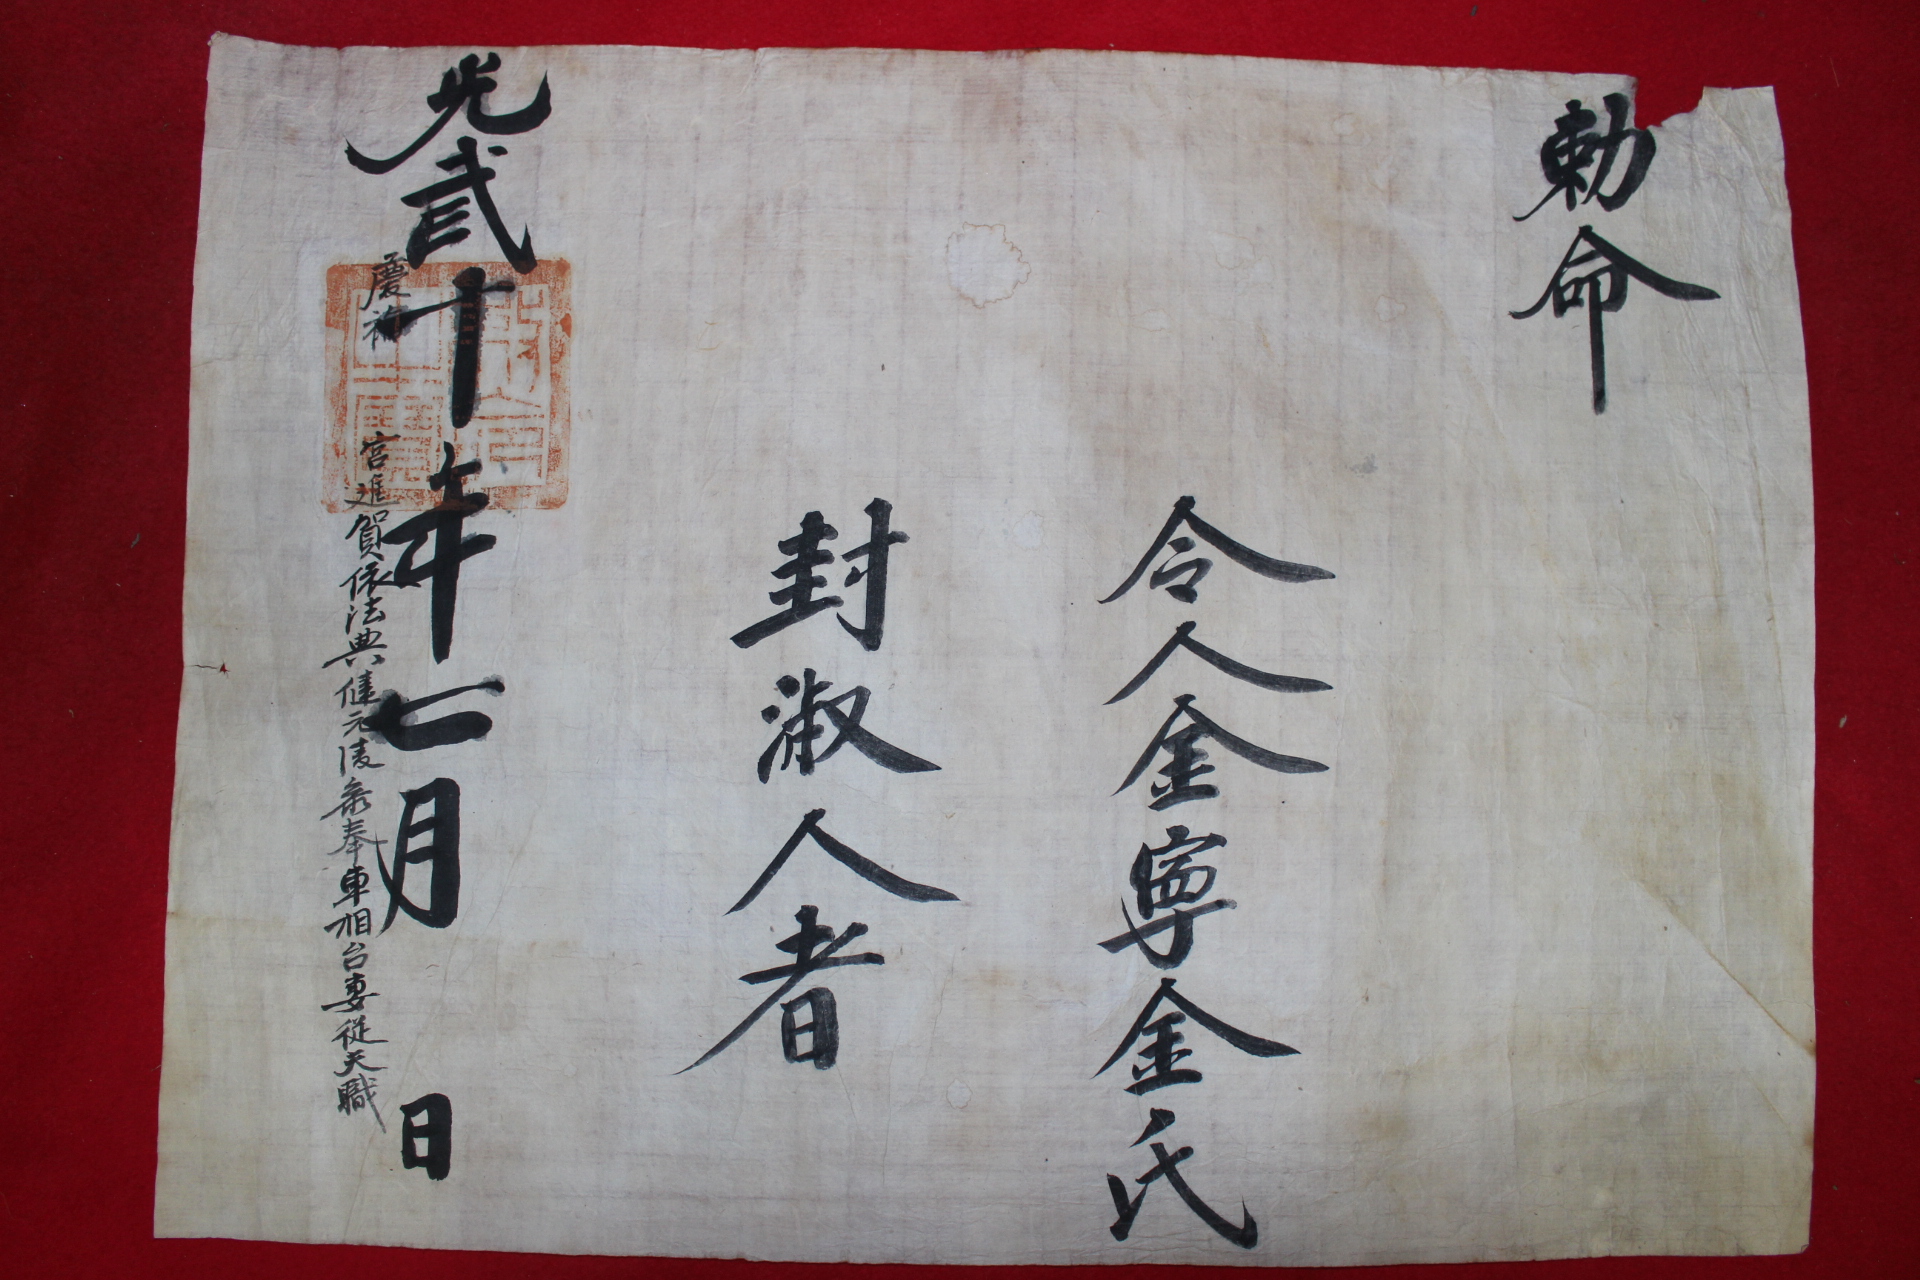 勅命
令人金寧金氏
封淑人者
光貳十年七月 日
慶 宮進賀依法典健元陵參奉車相台妻從夫職
施命之寶